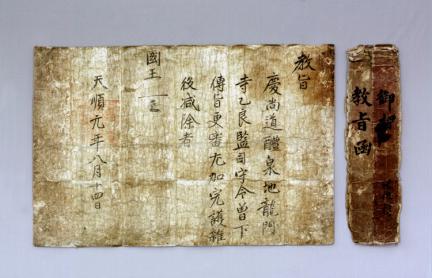 御
教旨函
教旨
慶尚道醴泉地龍門
寺乙良監司守令曾下
傳旨更審尤加完護雜
役減除者
國王
天順元年八月十四日